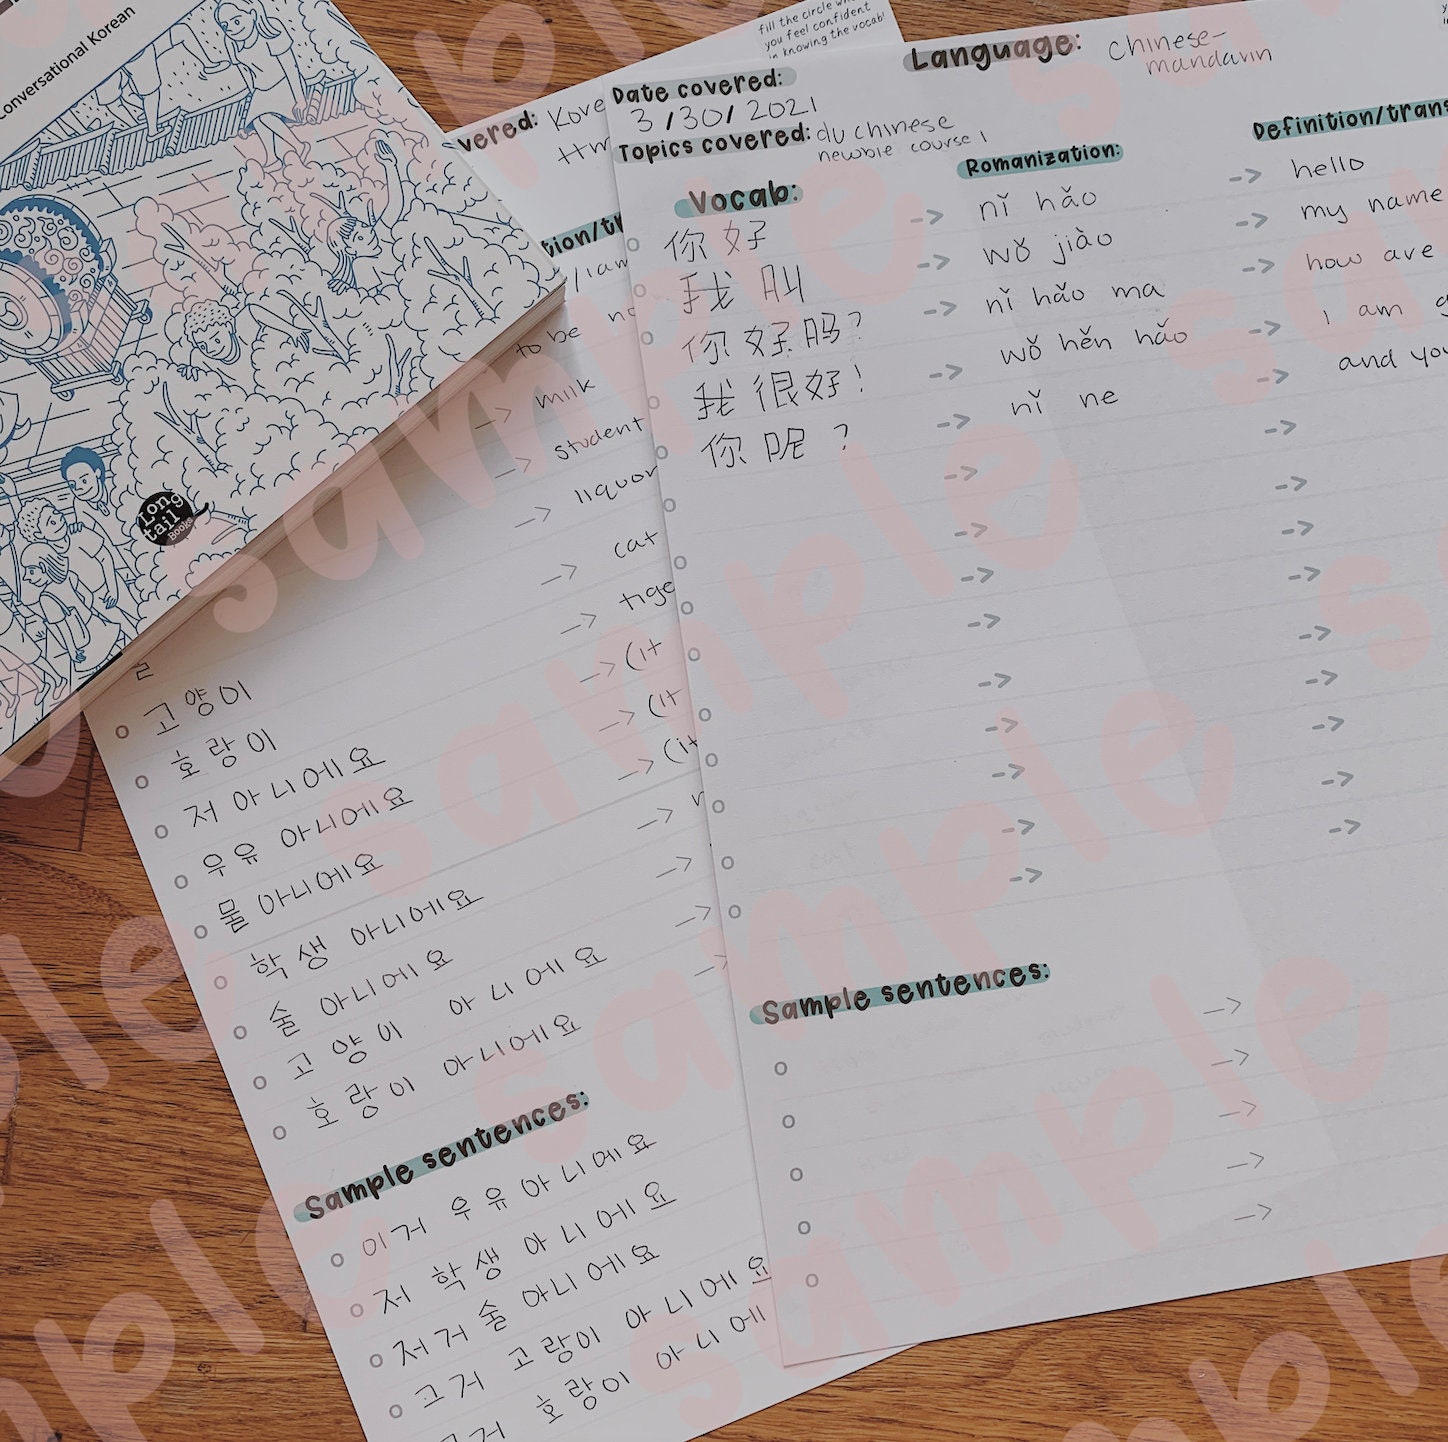 Conversational Korean
Long
tail
Books
fill the circle
you feel confident
in knowing the vocab!
Language: Chinese-
mandarin
Date covered:
3/30/2021
Topics covered: du chinese
newbie course 1
Vocab:
Romanization:
Definition/tran
你好 -> nǐ hǎo -> hello
我叫 -> wǒ jiào -> my name
你好吗? -> nǐ hǎo ma -> how are
我很好! -> wǒ hěn hǎo -> I am
你呢? -> nǐ ne -> and you
Sample sentences:
vered: Kore
tion/tr
to be
-> milk
-> student
-> liquor
-> cat
-> tige
-> (it
-> (it
-> (it
고양이
호랑이
저 아니에요
우유 아니에요
물 아니에요
학생 아니에요
술 아니에요
고양이 아니에요
호랑이 아니에요
Sample sentences:
이거 우유 아니에요
저 학생 아니에요
저거 술 아니에요
그거 고랑이 아니에요
그거 호랑이 아니에
sample
sample
sample
sample